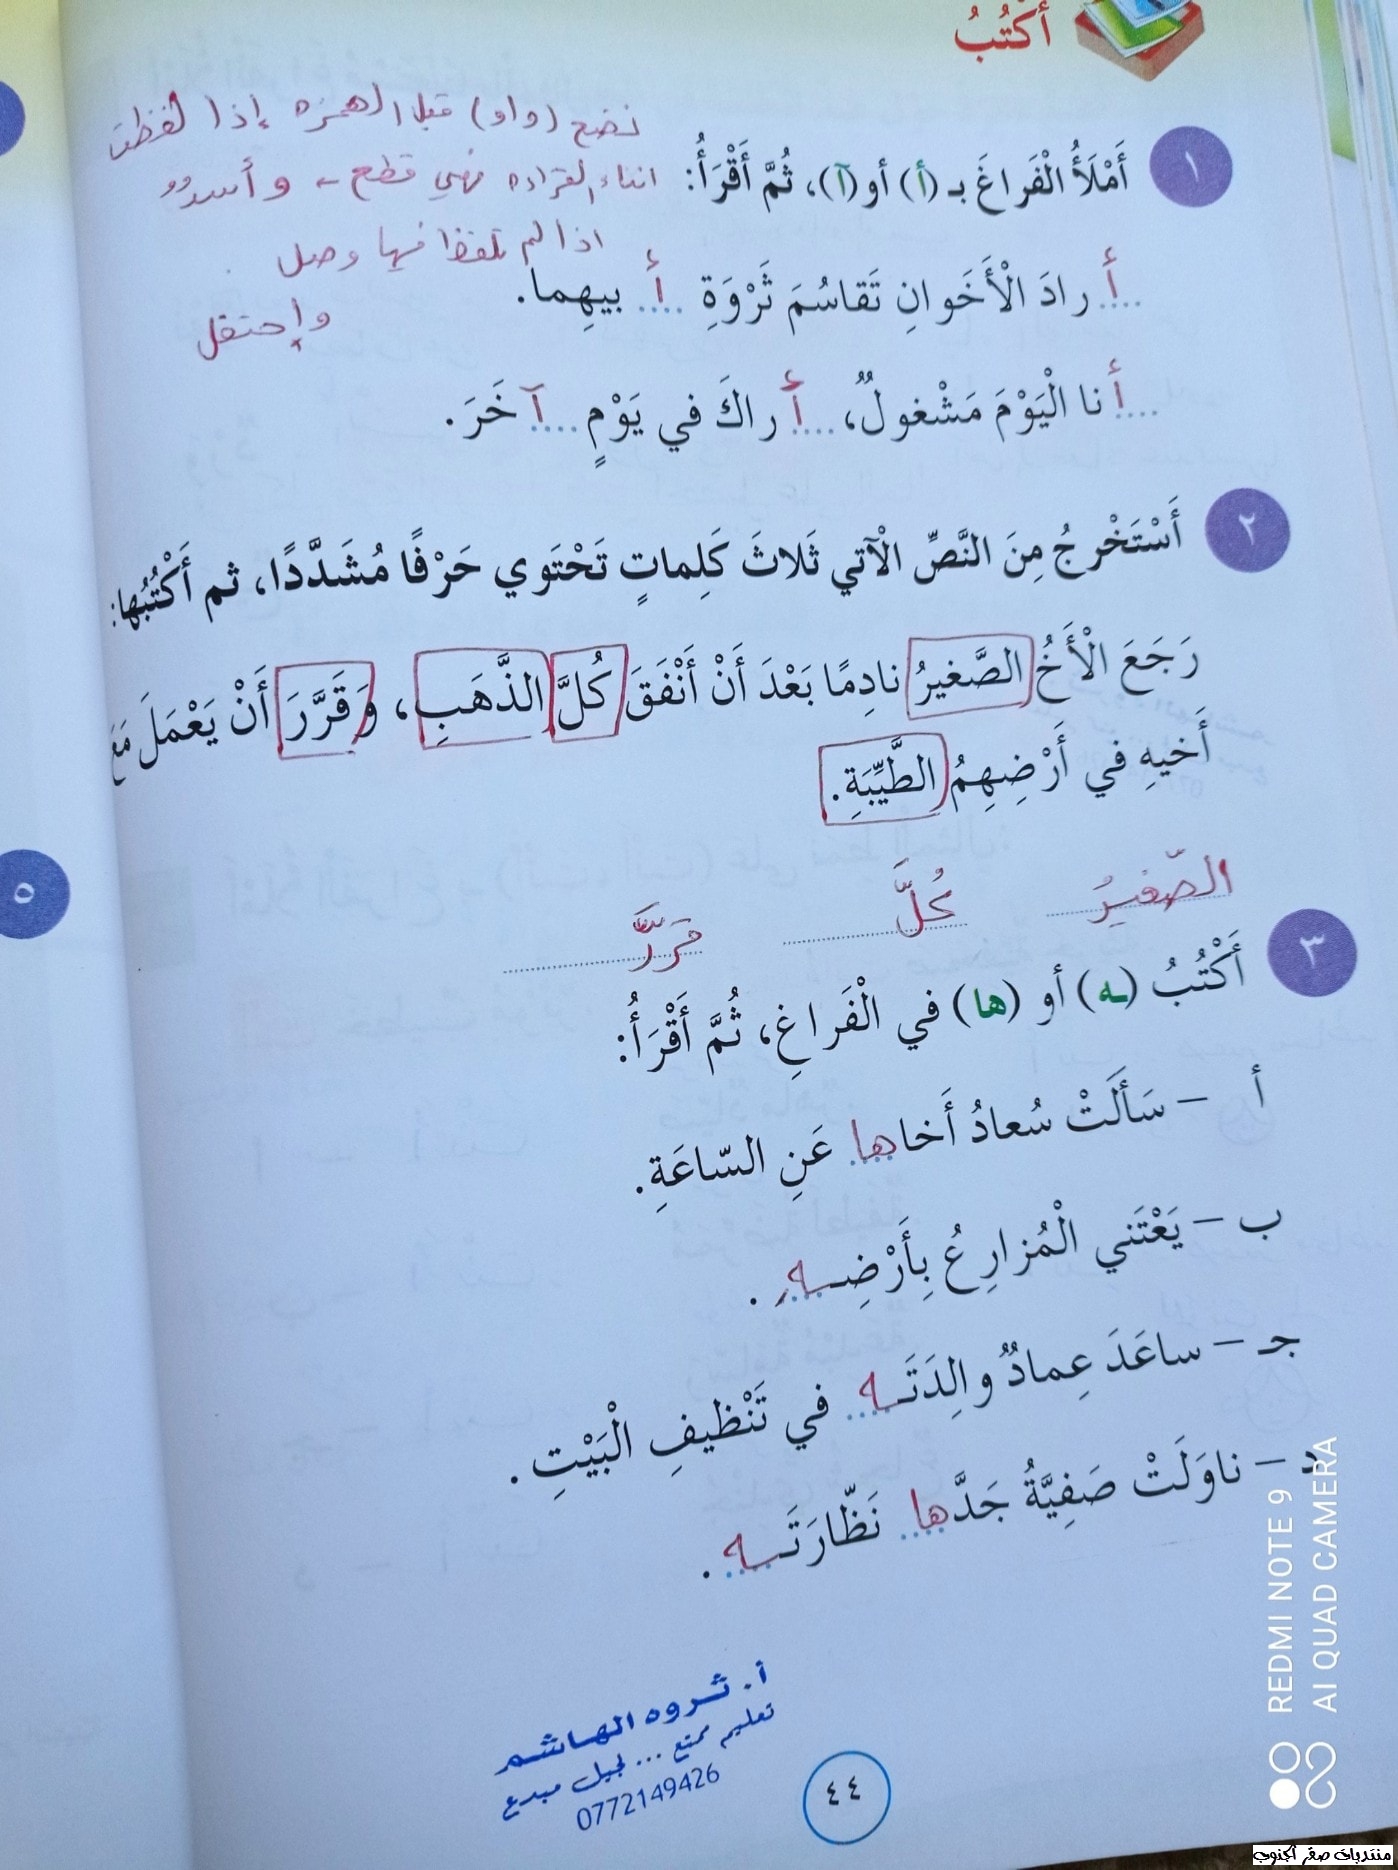 أَكْتُبُ
نضع (واو) قبل الهمزه إذا لفظت
١ أَمْلَأُ الْفَراغَ بـ (أ) أو (آ)، ثُمَّ أَقْرَأُ: اثناء القراءه فهي قطع
اذا لم تلفظ فهي وصل
أ.... رادَ الْأَخَوانِ تَقاسُمَ ثَرْوَةِ أ.... بيهِما.
وإحتفل
أ.... نا الْيَوْمَ مَشْغولٌ، أ.... راكَ في يَوْمٍ آ.... خَرَ.
٢ أَسْتَخْرِجُ مِنَ النَّصِّ الْآتي ثَلاثَ كَلِماتٍ تَحْتَوي حَرْفًا مُشَدَّدًا، ثم أَكْتُبُها:
رَجَعَ الْأَخُ الصَّغيرُ نادِمًا بَعْدَ أَنْ أَنْفَقَ كُلَّ الذَّهَبِ، وَقَرَّرَ أَنْ يَعْمَلَ مَعَ
أَخيهِ في أَرْضِهِمُ الطَّيِّبَةِ.
الصّغيرُ كُلَّ قرَّرَ
٣ أَكْتُبُ (ـه) أو (ها) في الْفَراغِ، ثُمَّ أَقْرَأُ:
أ – سَأَلَتْ سُعادُ أَخاها عَنِ السّاعَةِ.
ب – يَعْتَني الْمُزارِعُ بِأَرْضِـهِ.
جـ – ساعَدَ عِمادٌ والِدَتَـه في تَنْظيفِ الْبَيْتِ.
د – ناوَلَتْ صَفِيَّةُ جَدَّها نَظّارَتَـه.
٥
أ. ثروه الهاشم
تعليم ممتع ... لجيل مبدع
0772149426
٤٤
REDMI NOTE 9
AI QUAD CAMERA
منتديات صقر الجنوب